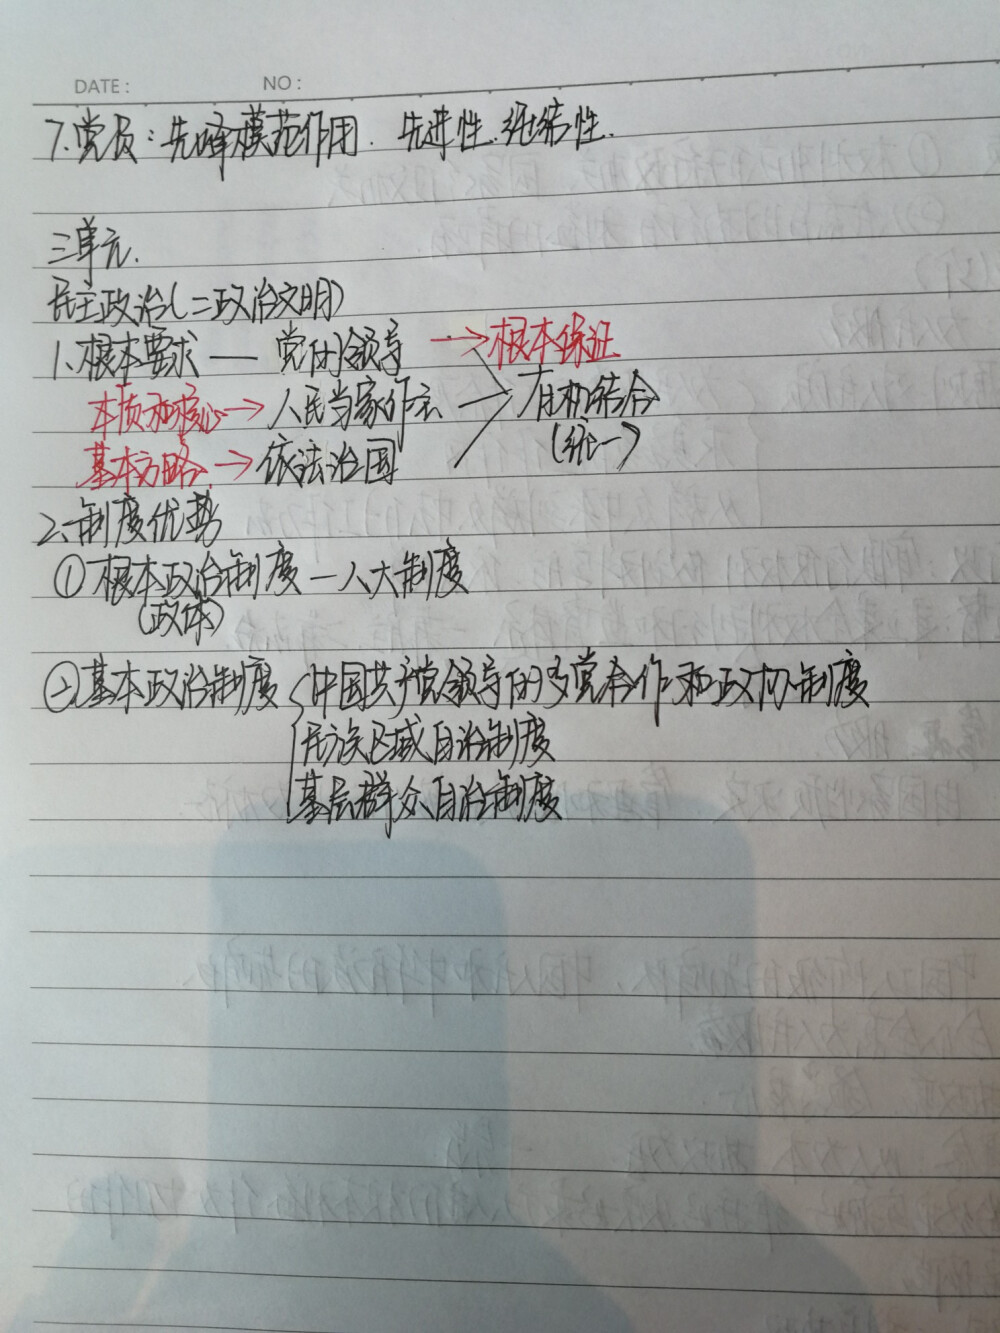 DATE: NO:
7.党员：先锋模范作用. 先进性.纯洁性.
三单元.
民主政治(=政治文明)
1.根本要求 — 党的领导 → 根本保证
本质和核心→ 人民当家作主 — 有机结合
(统一)
基本方略 → 依法治国
2.制度优势
①根本政治制度 — 人大制度
(政体)
②基本政治制度 {中国共产党领导的多党合作和政协制度
民族区域自治制度
基层群众自治制度